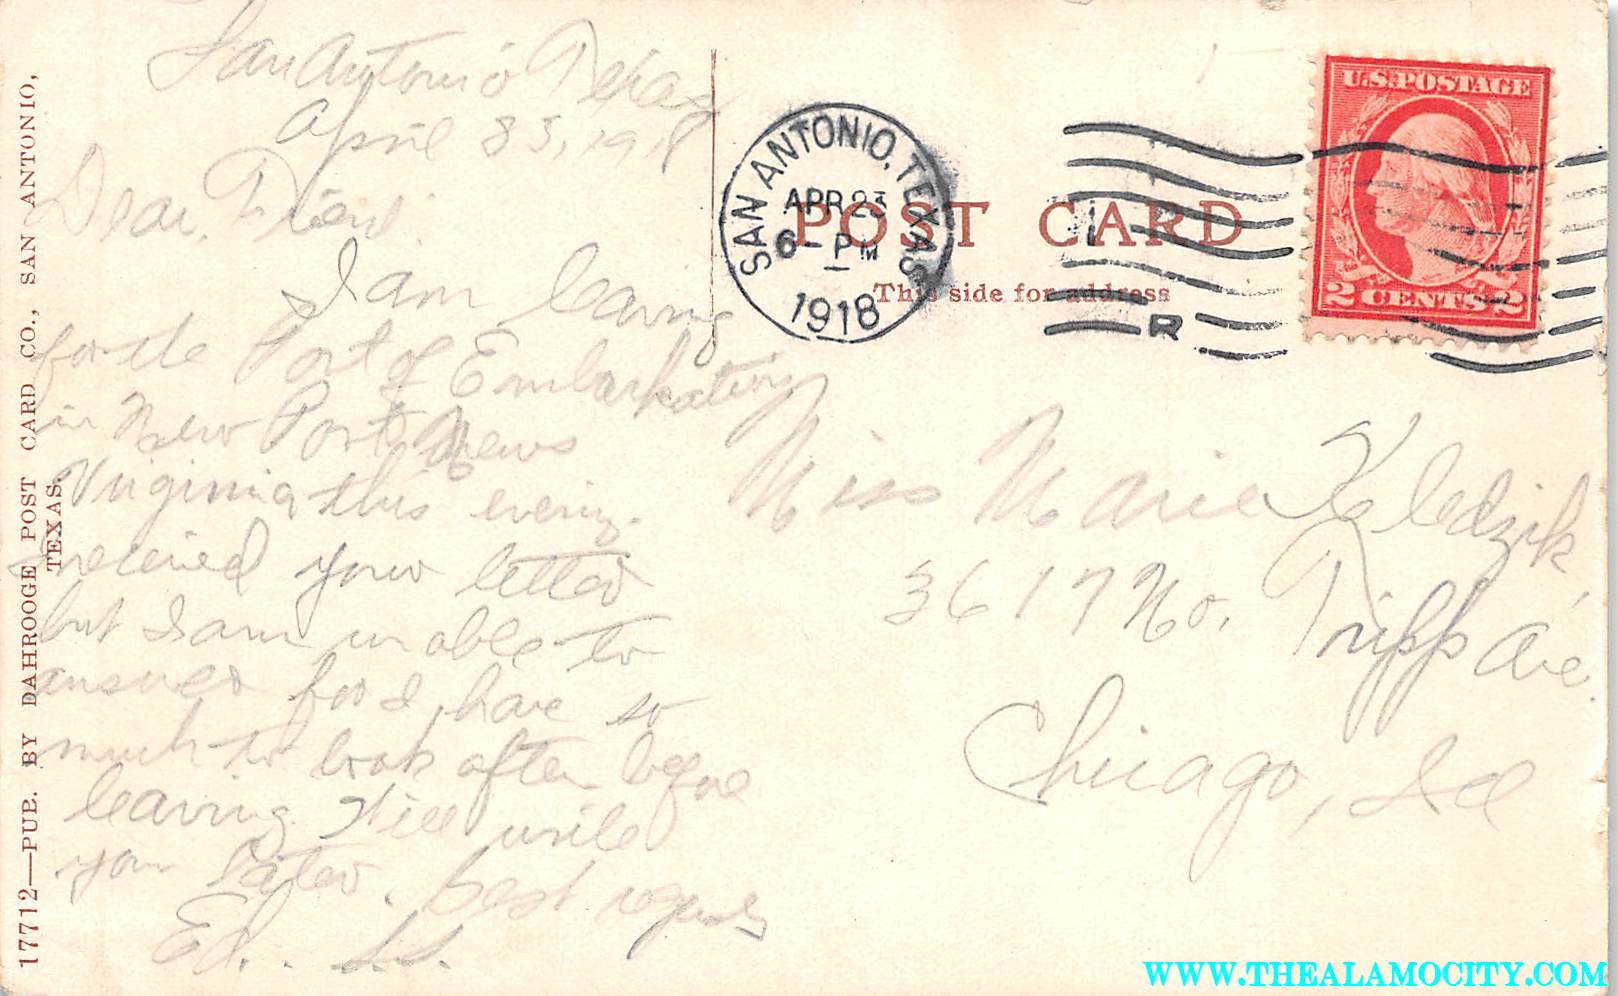 San Antonio Texas
April 23, 1918
Dear Friend:
I am leaving
for the Port of Embarkation
in New Port News
Virginia, this evening.
received your letter
but I am unable to
answer for I have so
much to look after before
leaving. Will write
you later. best regards
Ed.
17712—PUB. BY DAHROOGE POST CARD CO., SAN ANTONIO,
TEXAS.
SAN ANTONIO, TEXAS
APR 23
6 - PM
1918
POST CARD
This side for address
R
U.S. POSTAGE
2 CENTS 2
Miss Marie Kledzik,
3617 No. Tripp Ave.
Chicago, Ill
WWW.THEALAMOCITY.COM